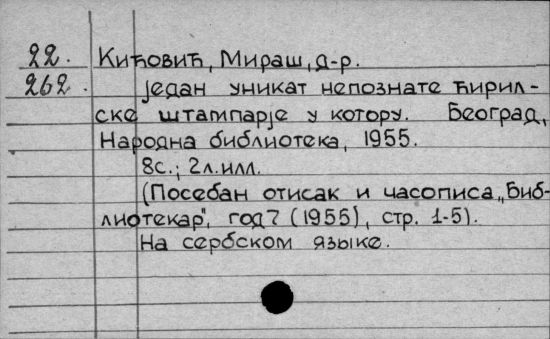 22. Кићовић, Мираш, д-р.
262. један уникат непознате ћирил-
ске штампарје у котору. Београд,
Народна библиотека, 1955.
8с.; 2л.илл.
(Посебан отисак и часописа „Биб-
лиотекар", год 7 (1955), стр. 1-5).
На сербском языке.